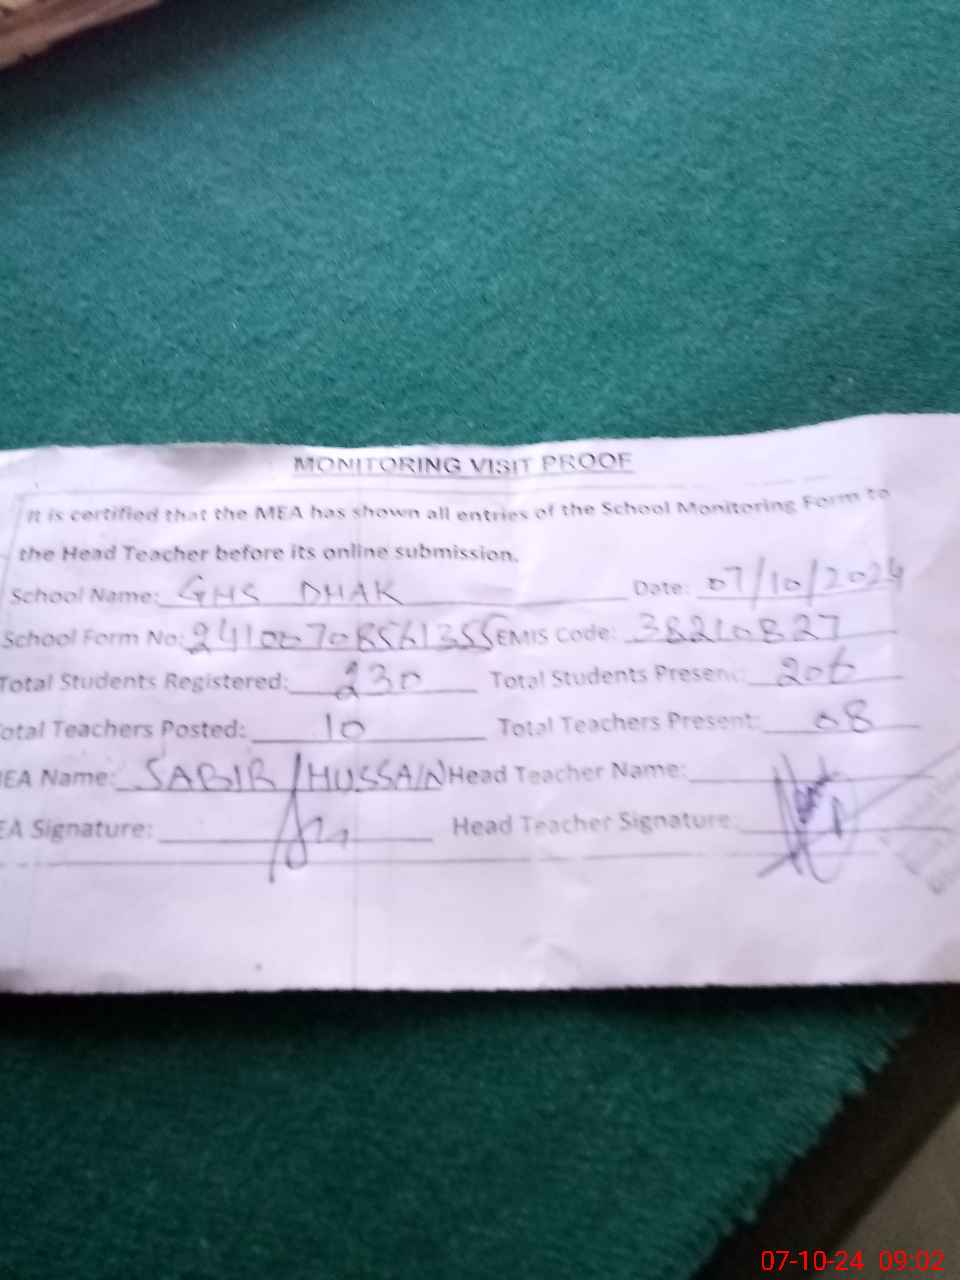 MONITORING VISIT PROOF
It is certified that the MEA has shown all entries of the School Monitoring Form to
the Head Teacher before its online submission.
School Name: GHS DHAK Date: 07/10/2024
School Form No: EMIS Code: 38210827
Total Students Registered: 230 Total Students Present: 206
otal Teachers Posted: 10 Total Teachers Present: 08
EA Name: SABIR HUSSAIN Head Teacher Name:
EA Signature: Head Teacher Signature:
07-10-24 09:02